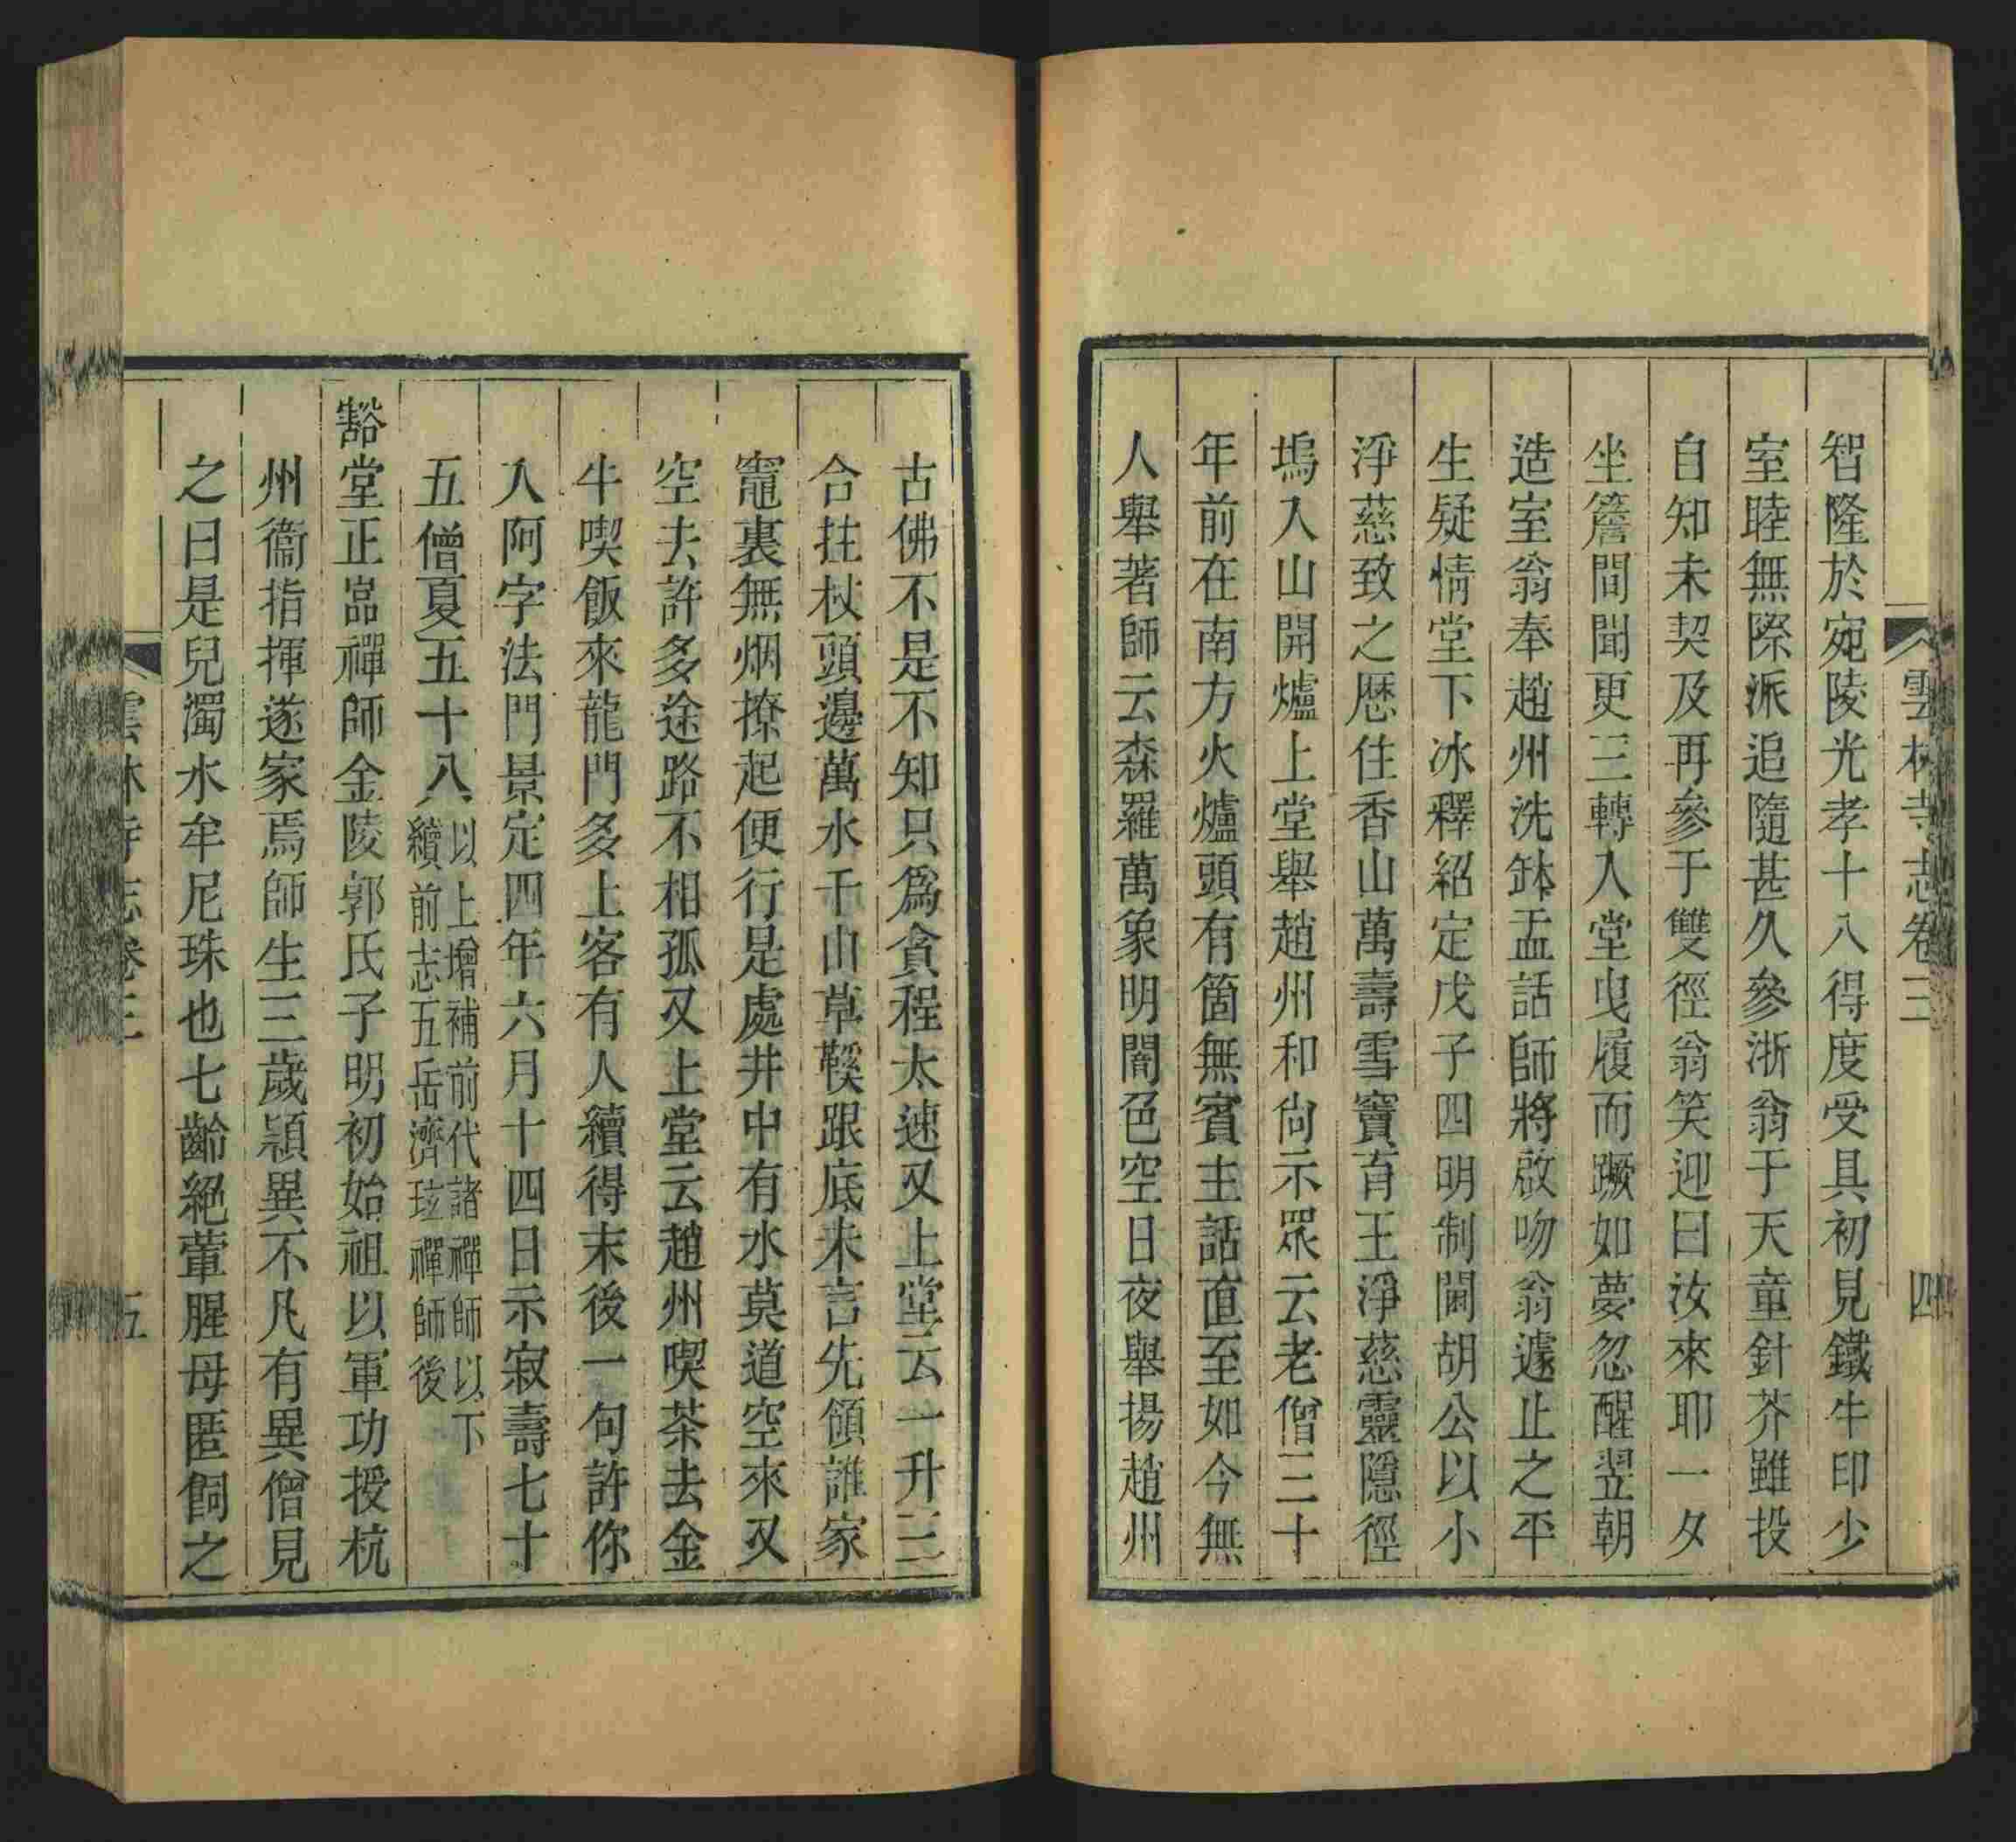 雲林寺志卷三
四
智隆於宛陵光孝十八得度受具初見鐵牛印少
室睦無際派追隨甚久參浙翁于天童針芥雖投
自知未契及再參于雙徑翁笑迎曰汝來耶一夕
坐簷間聞更三轉入堂曳履而蹶如夢忽醒翌朝
造室翁奉趙州洗鉢盂話師將啟吻翁遽止之平
生疑情堂下冰釋紹定戊子四明制閫胡公以小
淨慈致之歷住香山萬壽雪竇育王淨慈靈隱徑
塢入山開爐上堂舉趙州和尙示眾云老僧三十
年前在南方火爐頭有箇無賓主話直至如今無
人舉著師云森羅萬象明闇色空日夜舉揚趙州
古佛不是不知只爲貪程太速又上堂云一升三
合拄杖頭邊萬水千山草鞵跟底未言先領誰家
竈裏無烟撩起便行是處井中有水莫道空來又
空去許多途路不相孤又上堂云趙州喫茶去金
牛喫飯來龍門多上客有人續得末後一句許你
入阿字法門景定四年六月十四日示寂壽七十
五僧夏五十八以上增補前代諸禪師以下
續前志五岳濟玹禪師後
豁堂正嵓禪師金陵郭氏子明初始祖以軍功授杭
州衞指揮遂家焉師生三歲穎異不凡有異僧見
之曰是兒濁水牟尼珠也七齡絕葷腥母匿飼之
雲林寺志卷三
五